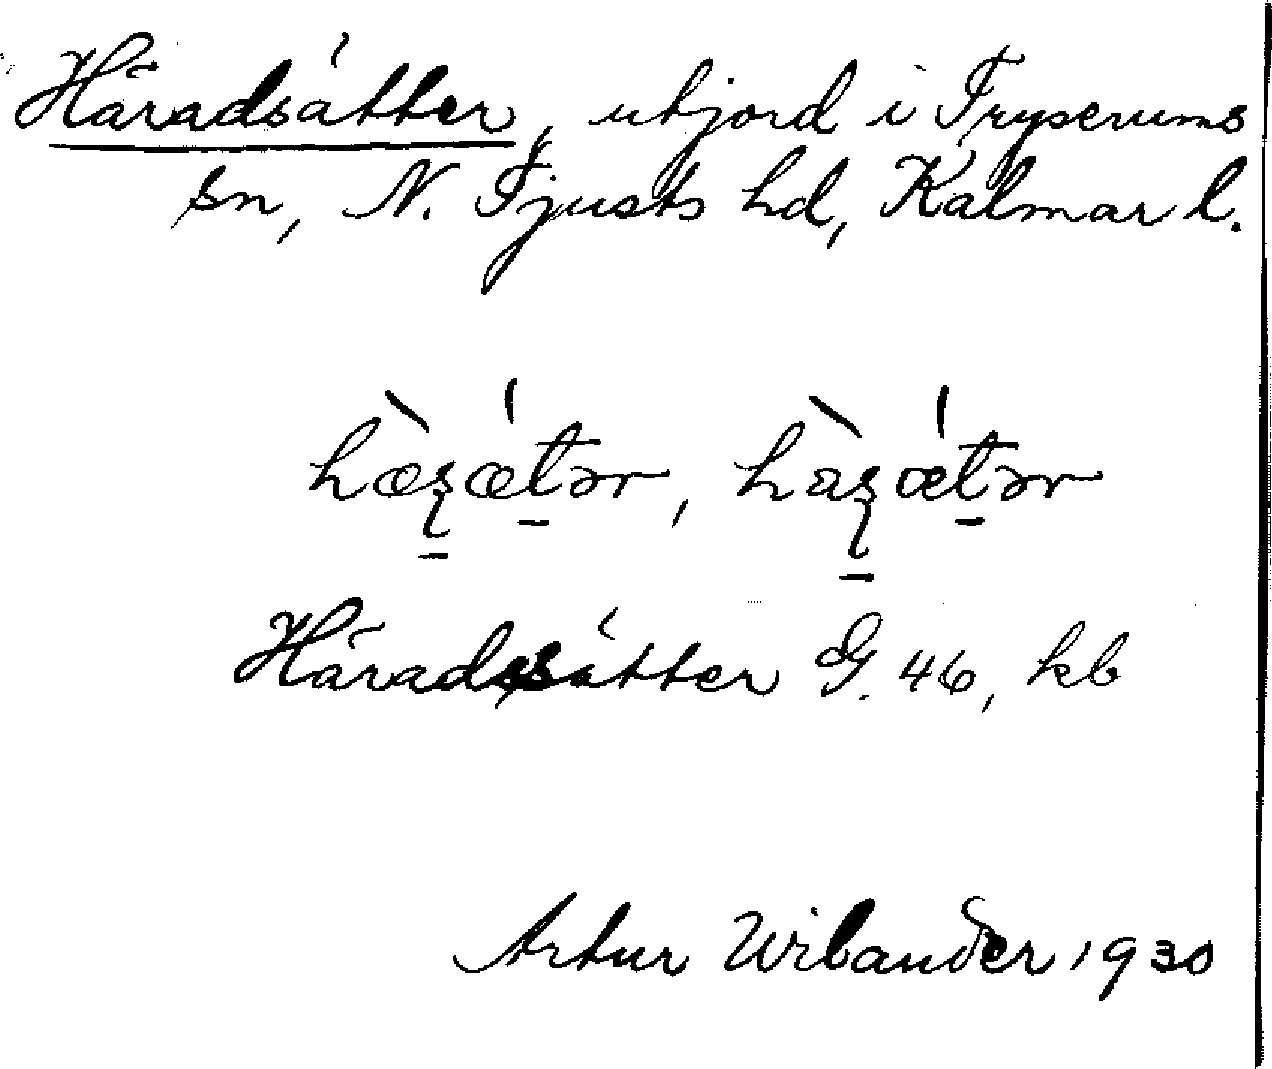 Häradsätter, utjord i Tryserums
sn, N. Tjusts hd, Kalmar l.
Häradssätter G. 46, kb
Artur Wilander 1930